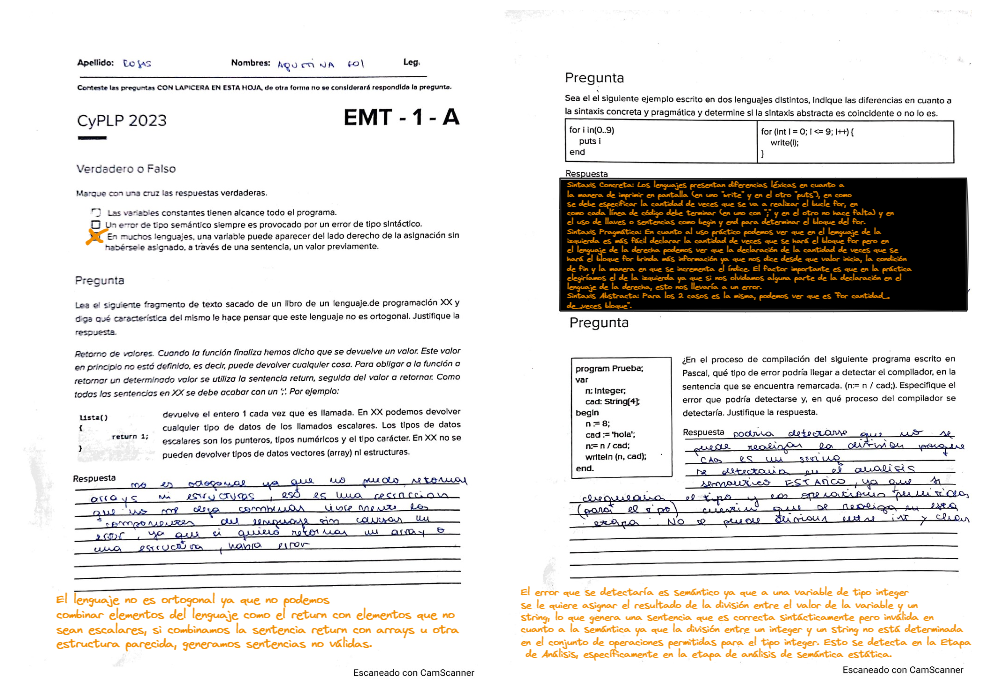 Apellido: ROJAS Nombres: AGUSTINA SOL Leg.
Conteste las preguntas CON LAPICERA EN ESTA HOJA, de otra forma no se considerará respondida la pregunta.
CyPLP 2023 EMT - 1 - A
Verdadero o Falso
Marque con una cruz las respuestas verdaderas.
Las variables constantes tienen alcance todo el programa.
Un error de tipo semántico siempre es provocado por un error de tipo sintáctico.
En muchos lenguajes, una variable puede aparecer del lado derecho de la asignación sin
habérsele asignado, a través de una sentencia, un valor previamente.
Pregunta
Lea el siguiente fragmento de texto sacado de un libro de un lenguaje.de programación XX y
diga qué característica del mismo le hace pensar que este lenguaje no es ortogonal. Justifique la
respuesta.
Retorno de valores. Cuando la función finaliza hemos dicho que se devuelve un valor. Este valor
en principio no está definido, es decir, puede devolver cualquier cosa. Para obligar a la función a
retornar un determinado valor se utiliza la sentencia return, seguida del valor a retornar. Como
todas las sentencias en XX se debe acabar con un ';'. Por ejemplo:
lista()
{
return 1;
}
devuelve el entero 1 cada vez que es llamada. En XX podemos devolver
cualquier tipo de datos de los llamados escalares. Los tipos de datos
escalares son los punteros, tipos numéricos y el tipo carácter. En XX no se
pueden devolver tipos de datos vectores (array) ni estructuras.
Respuesta no es ortogonal ya que no puedo retornar
arrays ni estructuras, eso es una restriccion
que no me deja combinar libremente los
componentes del lenguaje sin causar un
error, ya que si quiero retornar un array o
una estructura, habra error
El lenguaje no es ortogonal ya que no podemos
combinar elementos del lenguaje como el return con elementos que no
sean escalares, si combinamos la sentencia return con arrays u otra
estructura parecida, generamos sentencias no válidas.
Escaneado con CamScanner
Pregunta
Sea el el siguiente ejemplo escrito en dos lenguajes distintos, indique las diferencias en cuanto a
la sintaxis concreta y pragmática y determine si la sintaxis abstracta es coincidente o no lo es.
for i in(0..9)
puts i
end
for (int i = 0; i <= 9; i++) {
write(i);
}
Respuesta
Sintaxis Concreta: Los lenguajes presentan diferencias léxicas en cuanto a
la manera de imprimir en pantalla (en uno "write" y en el otro "puts"), en como
se debe especificar la cantidad de veces que se va a realizar el bucle for, en
como cada línea de código debe terminar (en uno con ";" y en el otro no hace falta) y en
el uso de llaves o sentencias como begin y end para determinar el bloque del for.
Sintaxis Pragmática: En cuanto al uso práctico podemos ver que en el lenguaje de la
izquierda es más fácil declarar la cantidad de veces que se hará el bloque for pero en
el lenguaje de la derecha podemos ver que la declaración de la cantidad de veces que se
hará el bloque for brinda más información ya que nos dice desde que valor inicia, la condición
de fin y la manera en que se incrementa el índice. El factor importante es que en la práctica
elegiríamos el de la izquierda ya que si nos olvidamos alguna parte de la declaración en el
lenguaje de la derecha, esto nos llevaría a un error.
Sintaxis Abstracta: Para los 2 casos es la misma, podemos ver que es "For cantidad_
de_veces bloque".
Pregunta
program Prueba;
var
n: integer;
cad: String[4];
begin
n := 8;
cad := 'hola';
n:= n / cad;
writeln (n, cad);
end.
¿En el proceso de compilación del siguiente programa escrito en
Pascal, qué tipo de error podría llegar a detectar el compilador, en la
sentencia que se encuentra remarcada. (n:= n / cad;). Especifique el
error que podría detectarse y, en qué proceso del compilador se
detectaría. Justifique la respuesta.
Respuesta podria detectarse que no se
puede realizar la division porque
cad es un string
se detectaria en el analisis
semantico ESTATICO, ya que si
chequearia el tipo y las operaciones permitidas
(para el tipo) que se realiza en esta
etapa. No se puede dividir entre int y char
El error que se detectaría es semántico ya que a una variable de tipo integer
se le quiere asignar el resultado de la división entre el valor de la variable y un
string, lo que genera una sentencia que es correcta sintácticamente pero inválida en
cuanto a la semántica ya que la división entre un integer y un string no está determinada
en el conjunto de operaciones permitidas para el tipo integer. Esto se detecta en la Etapa
de Análisis, específicamente en la etapa de análisis de semántica estática.
Escaneado con CamScanner